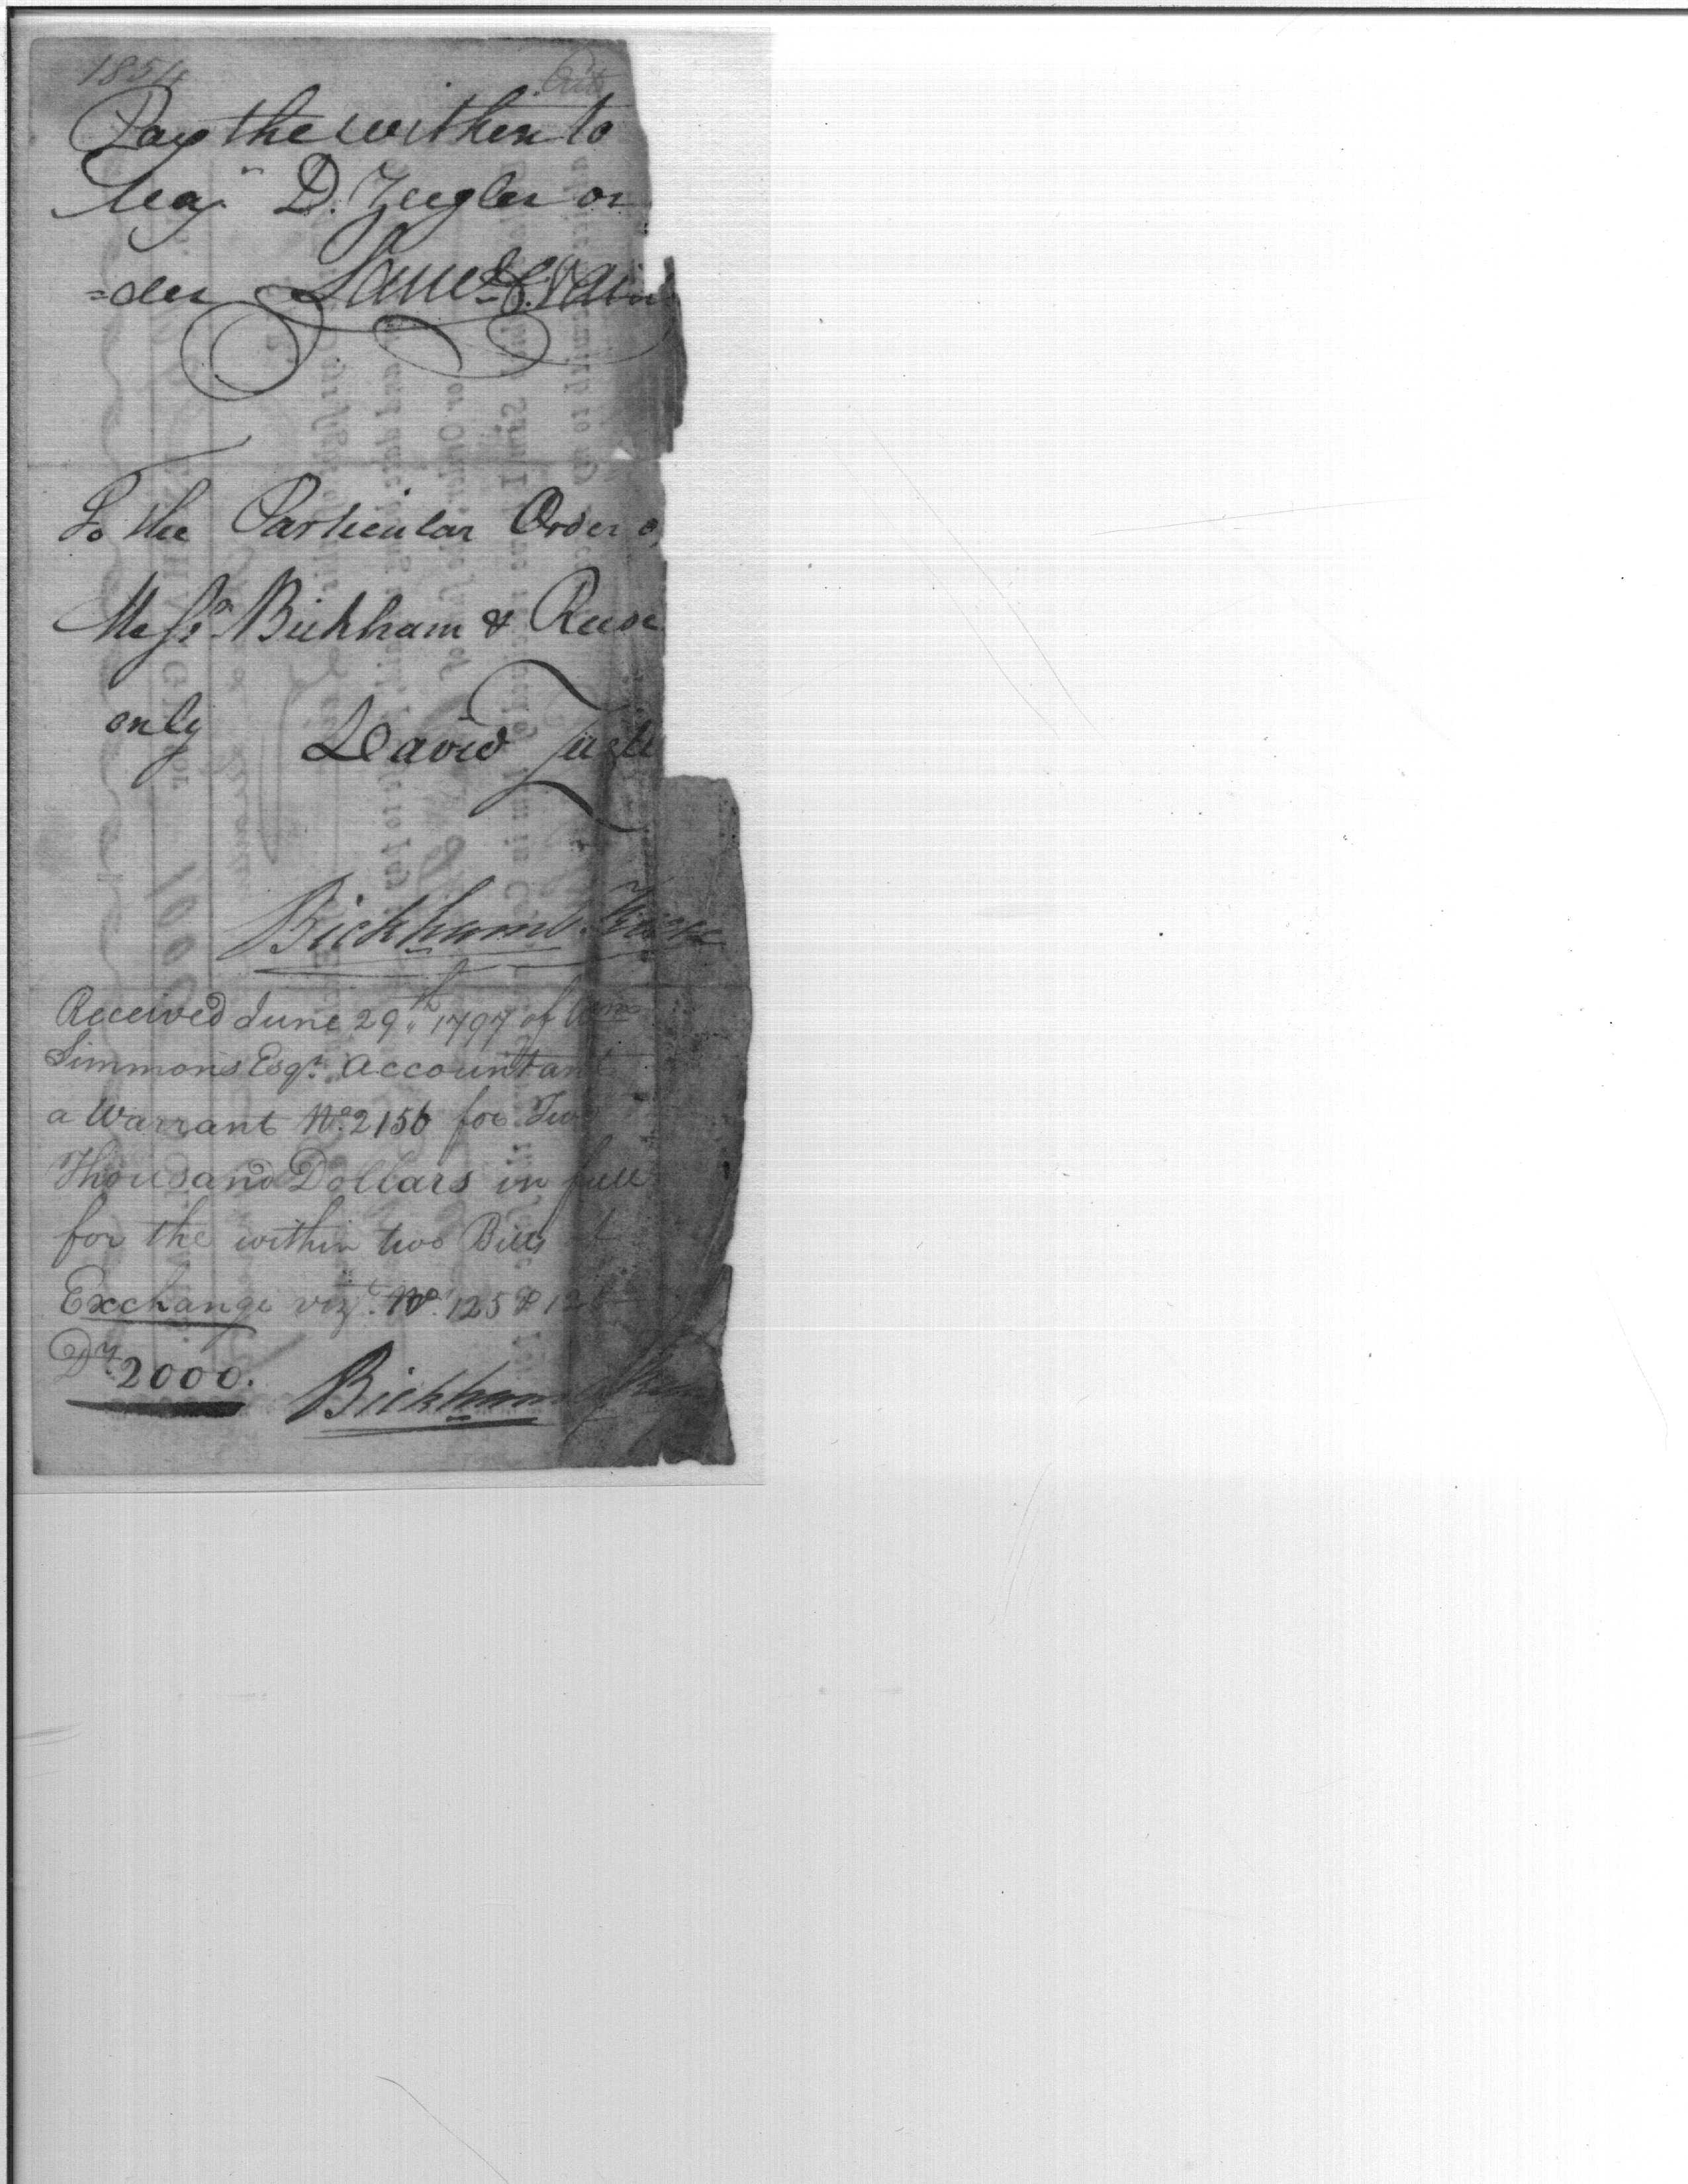 1854
Pay the within to
Maj.r D. Zeigler or
=der Sam.l C. Vai
To the Particular Order o
Mess.rs Bickham & Reese
only David
Bickham & Reese
Received June 29.th 1797 of Wm
Simmons Esq.r Accountant
a Warrant No. 2156 for Two
Thousand Dollars in full
for the within two Bills
Exchange viz.t No. 125 & 12
Drs 2000. Bickham &